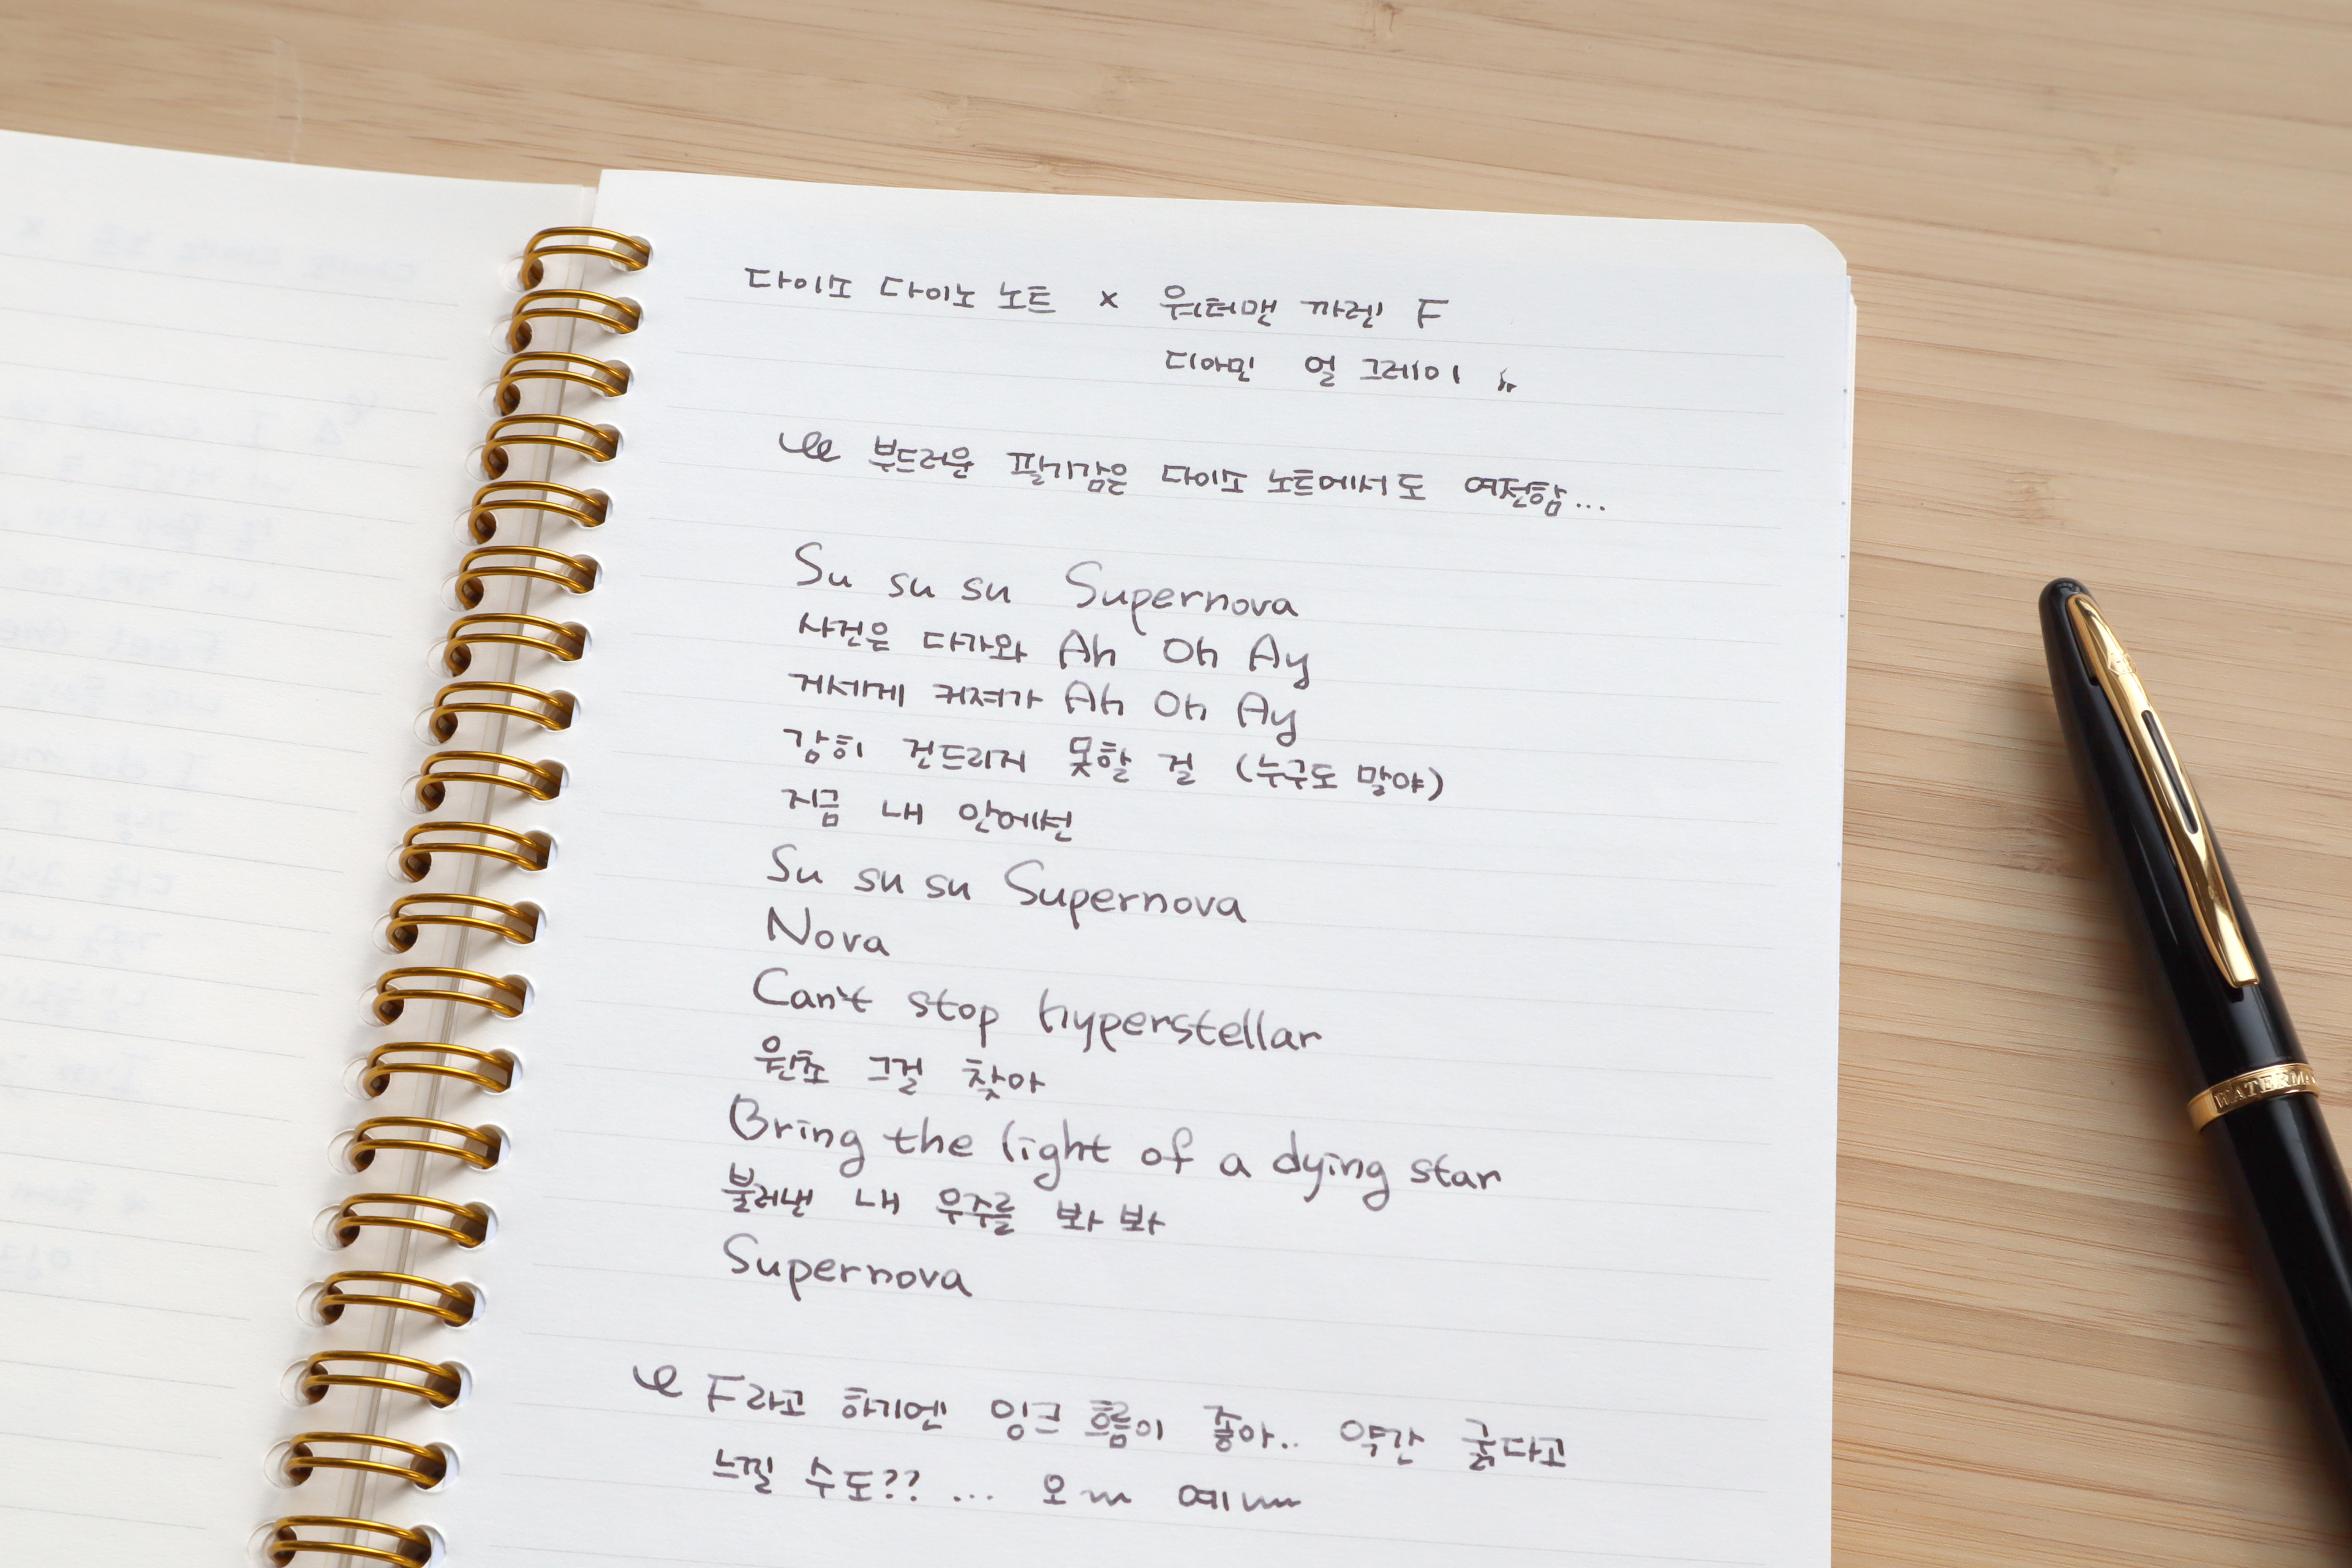 다이소 다이노 노트 x 워터맨 까렌 F
디아민 얼 그레이
부드러운 필기감은 다이소 노트에서도 여전함...
Su su su Supernova
사건은 다가와 Ah Oh Ay
거세게 커져가 Ah Oh Ay
감히 건드리지 못할 걸 (누구도 말야)
지금 내 안에선
Su su su Supernova
Nova
Can't stop hyperstellar
원초 그걸 찾아
Bring the light of a dying star
불러낸 내 우주를 봐 봐
Supernova
F라고 하기엔 잉크 흐름이 좋아.. 약간 굵다고
느낄 수도?? ... 오~~ 예~~
WATERMA